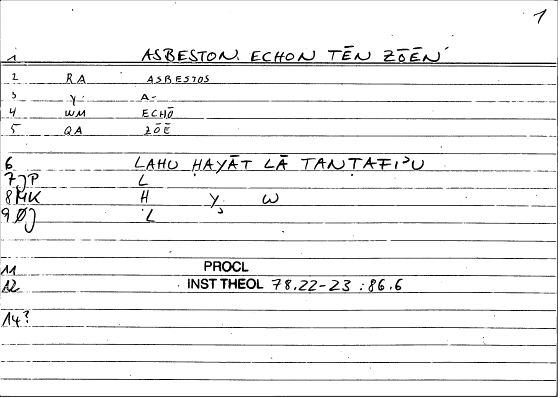 1
1 ASBESTON ECHON TĒN ZŌĒN
2 RA ASBESTOS
3 Y A-
4 WM ECHŌ
5 QA ZŌĒ
6 LAHU ḤAYĀT LĀ TANṬAFIʾU
7 JP L
8 MK H Y W
9 ØJ L
11 PROCL
12 INST THEOL 78.22-23 : 86.6
14?